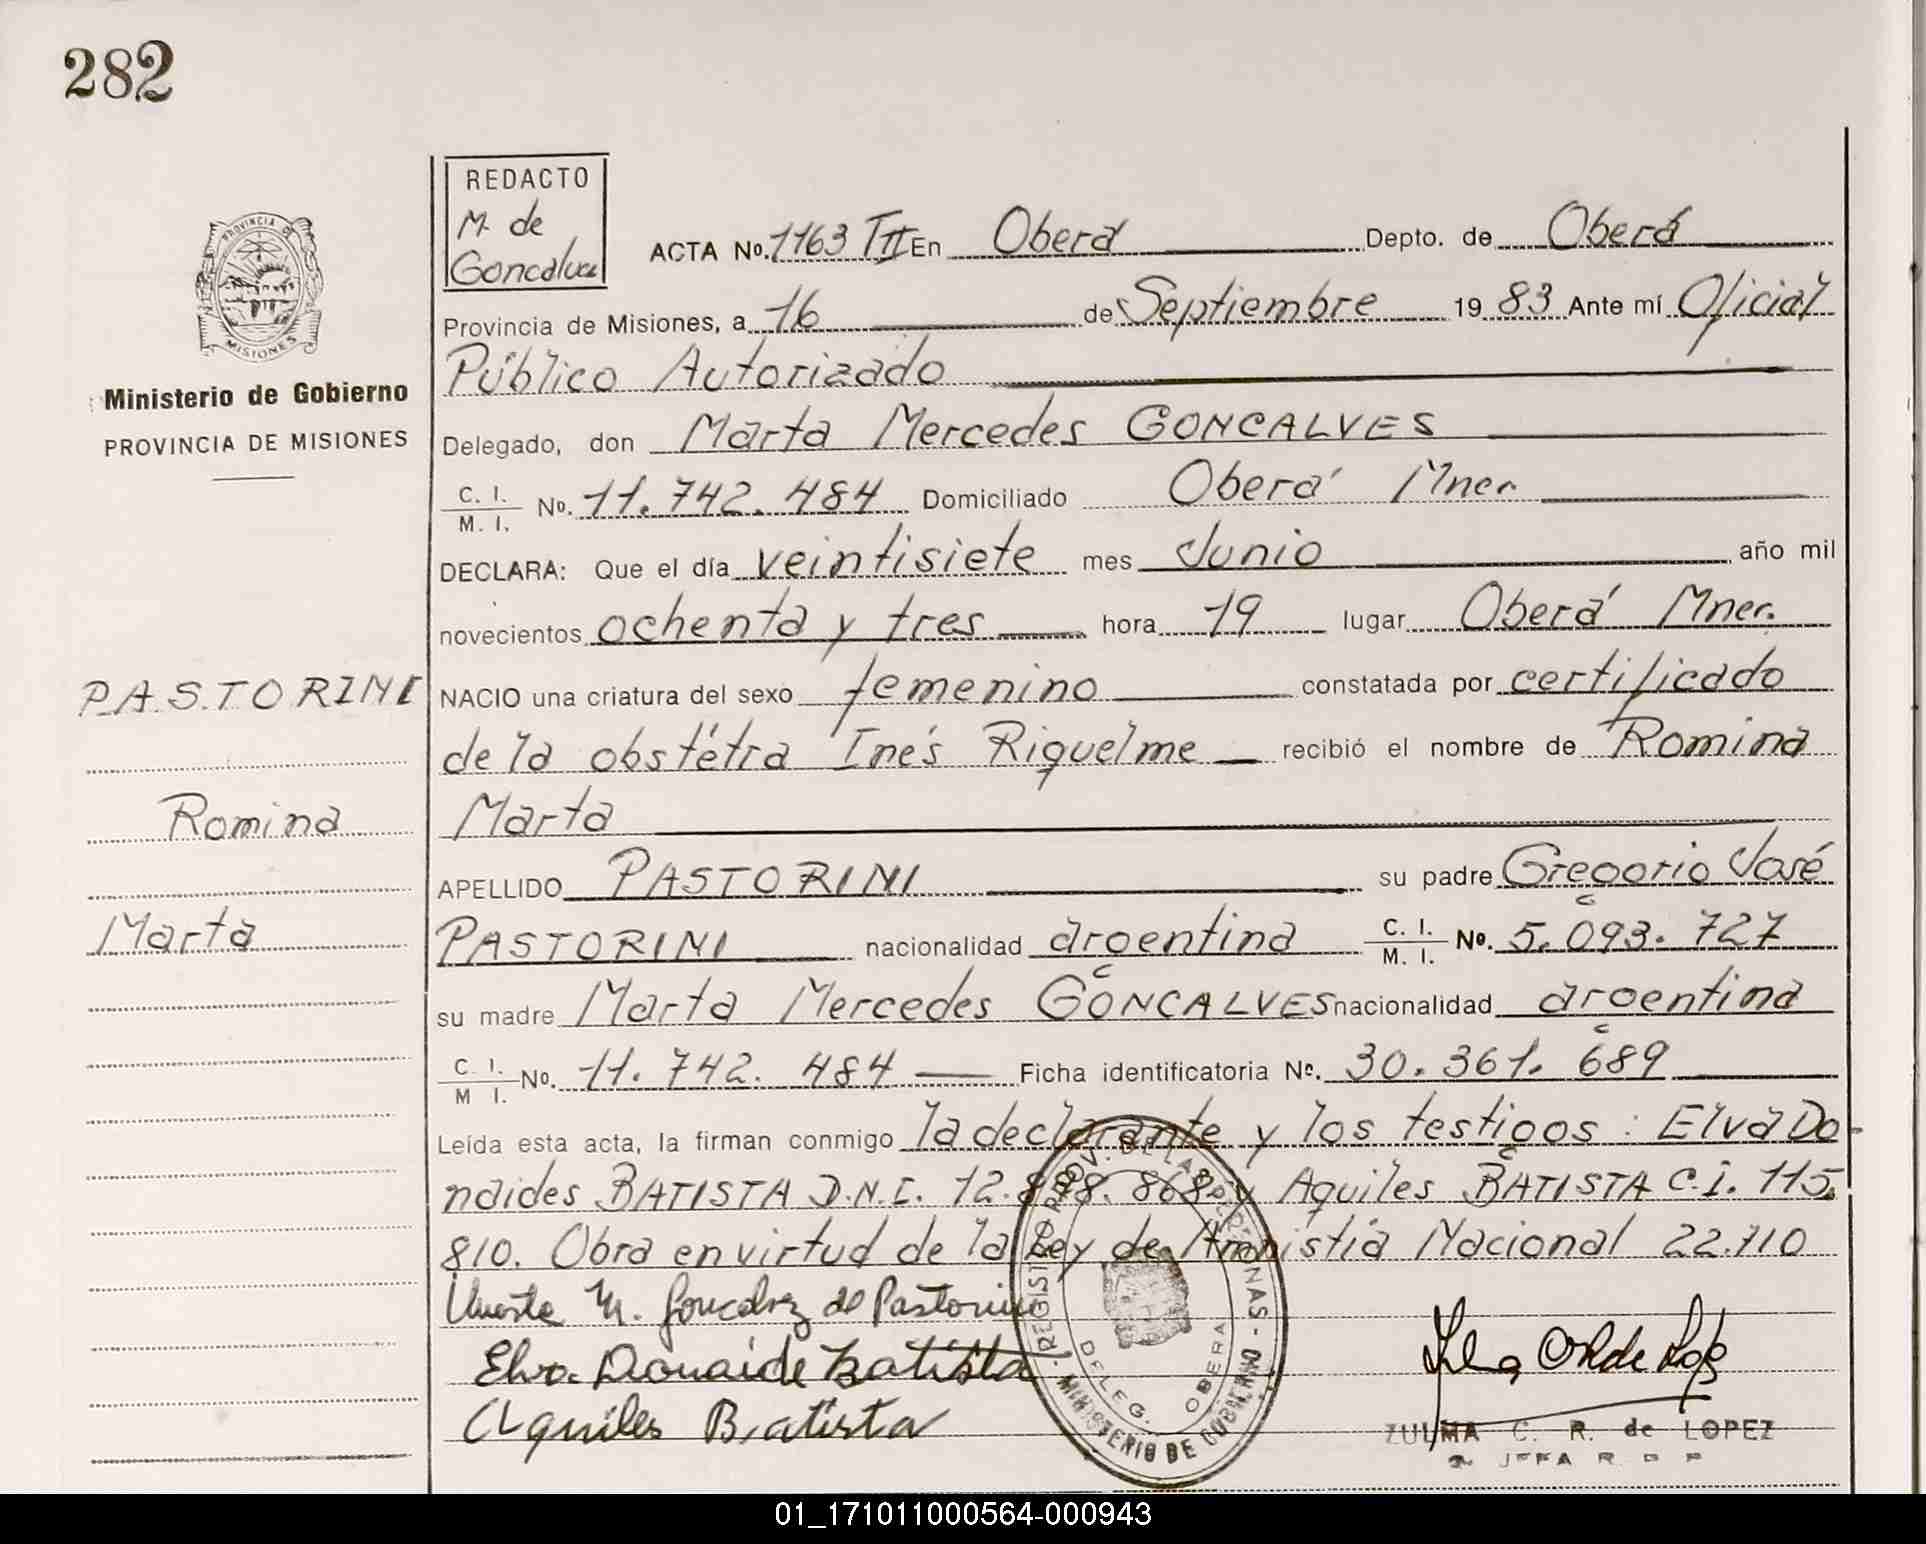 282
REDACTO
M. de
Goncalves
ACTA No. 1163 TII En Oberá Depto. de Oberá
Provincia de Misiones, a 16 de Septiembre 1983 Ante mí Oficial
Público Autorizado
Delegado, don Marta Mercedes GONCALVES
C. I. / M. I. No. 11.742.484 Domiciliado Oberá Mnes.
DECLARA: Que el día veintisiete mes Junio año mil
novecientos ochenta y tres hora 19 lugar Oberá Mnes.
NACIO una criatura del sexo femenino constatada por certificado
de la obstétra Inés Riquelme recibió el nombre de Romina
Marta
APELLIDO PASTORINI su padre Gregorio José
PASTORINI nacionalidad argentina C. I. / M. I. No. 5.093.727
su madre Marta Mercedes GONCALVES nacionalidad argentina
C. I. / M I. No. 11.742.484 Ficha identificatoria No. 30.361.689
Leída esta acta, la firman conmigo la declarante y los testigos: Elva Do-
naides BATISTA D.N.I. 12.898.868 y Aquiles BATISTA C.I. 115.
810. Obra en virtud de la Ley de Amnistía Nacional 22.710
Marta M. Goncalvez de Pastorini
Elva Donaide Batista
Aquiles Batista
ZULMA C. R. de LOPEZ
REGISTRO PROV. DE LAS PERSONAS - MINISTERIO DE GOBIERNO
DELEG. OBERA
PROVINCIA DE
MISIONES
Ministerio de Gobierno
PROVINCIA DE MISIONES
PASTORINI
Romina
Marta
01_171011000564-000943